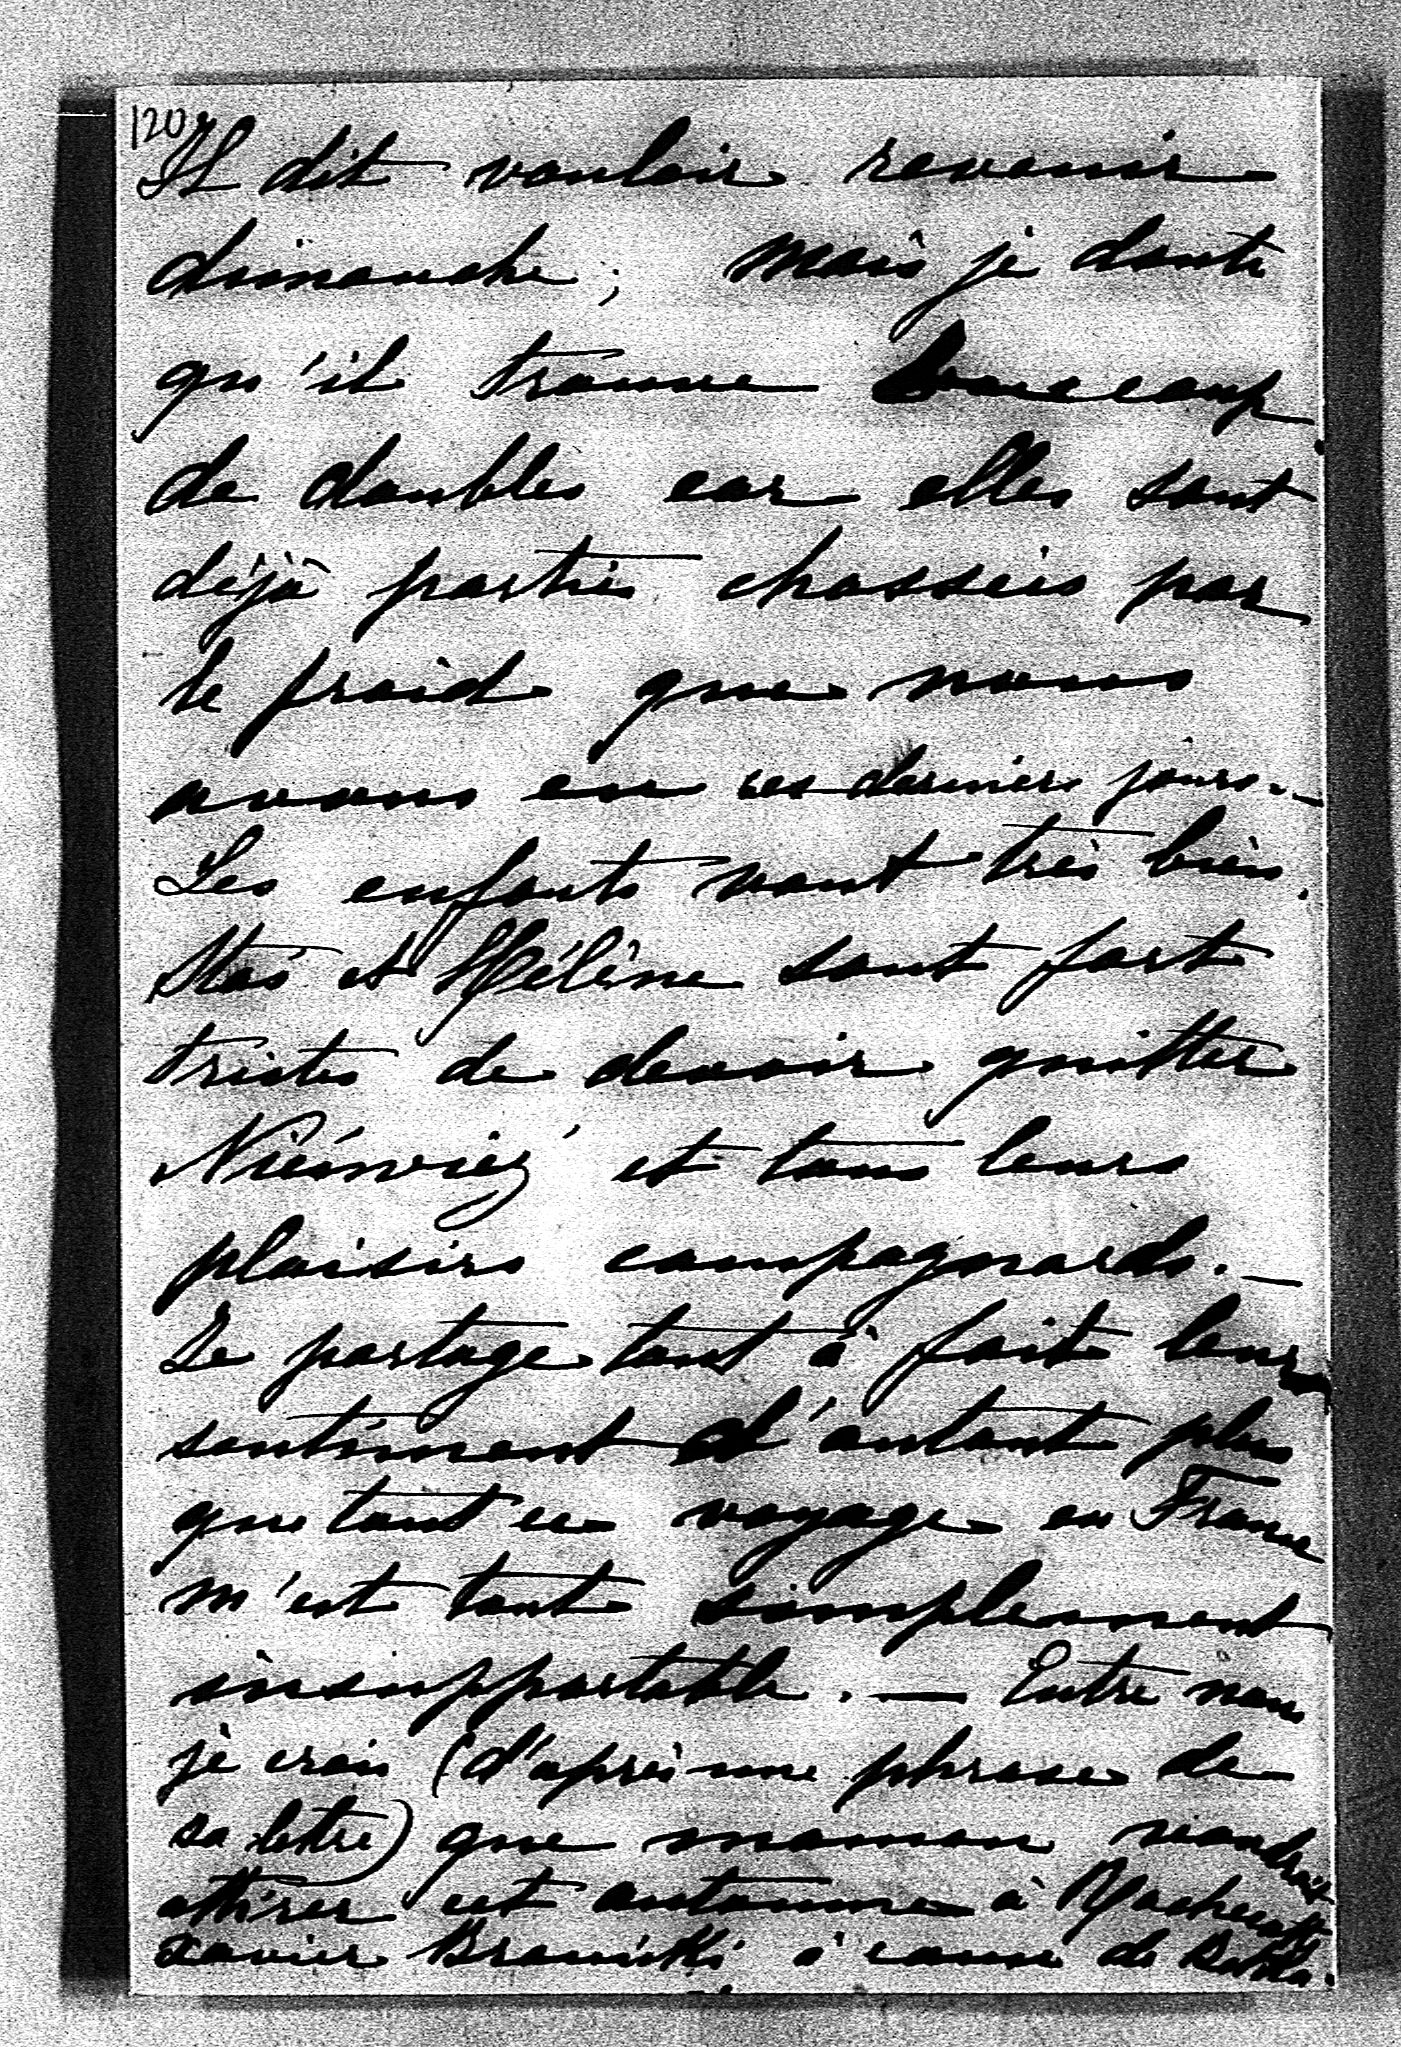 120
Il dit vouloir revenir
dimanche; mais je doute
qu'il trouve beaucoup
de doubles car elles sont
déjà parties chassées par
le froid que nous
avons eu ces derniers jours. —
Les enfants vont très bien.
Stas et Hélène sont fort
tristes de devoir quitter
Nieśwież et tous leurs
plaisirs campagnards. —
Je partage tout à fait leur
sentiment d'autant plus
que tout ce voyage en France
m'est tout simplement
insupportable. — Entre nous
je crois (d'après une phrase de
sa lettre) que maman viendrait
attirer cet automne à
Xavier Branicki à cause de